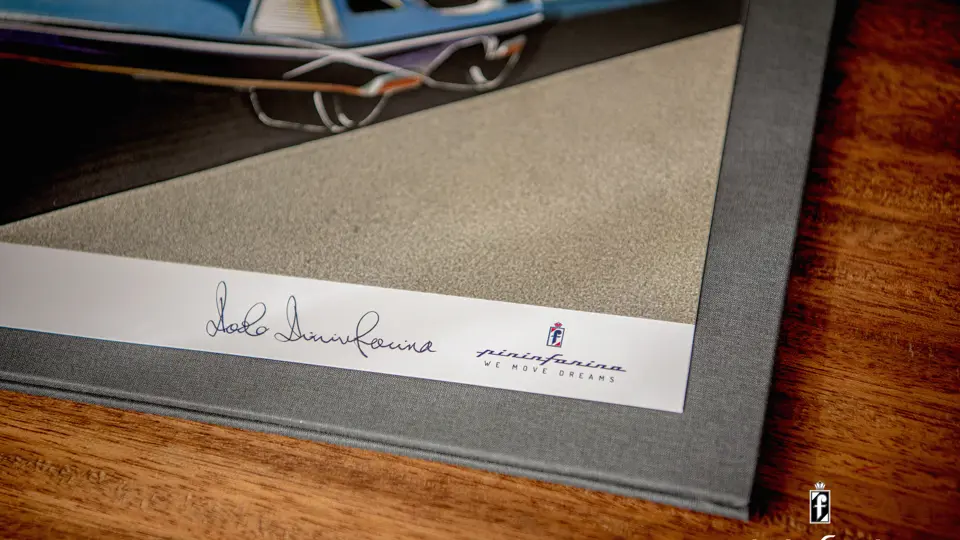 Paolo Pininfarina
f
pininfarina
WE MOVE DREAMS
f